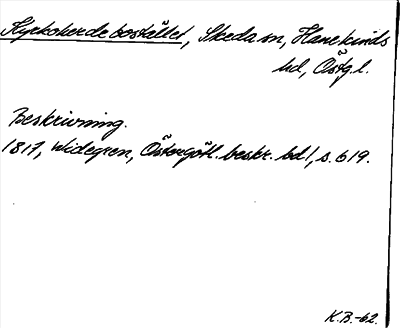 Kyrkoherdebostället, Skeda sn, Hanekinds
hd, Östg.l.
Beskrivning.
1817, Widegren, Östergötl. beskr. bd 1, s. 619.
K.B.-62.